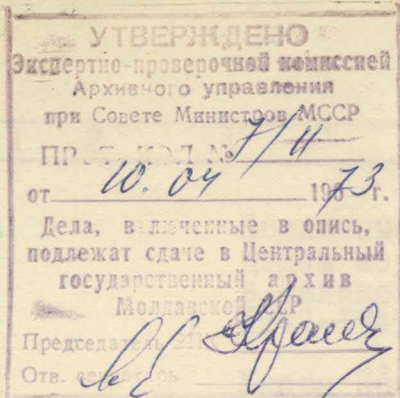 УТВЕРЖДЕНО
Экспертно-проверочной комиссией
Архивного управления
при Совете Министров МССР
ПРОТОКОЛ № 7/II
от 10.04 1973 г.
Дела, включенные в опись,
подлежат сдаче в Центральный
государственный архив
Молдавской ССР
Председатель
Отв. секретарь